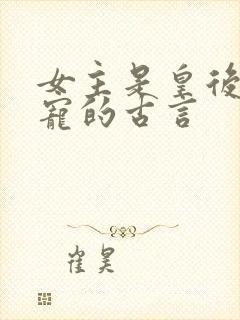 女主是皇後
寵的古言
崔昊